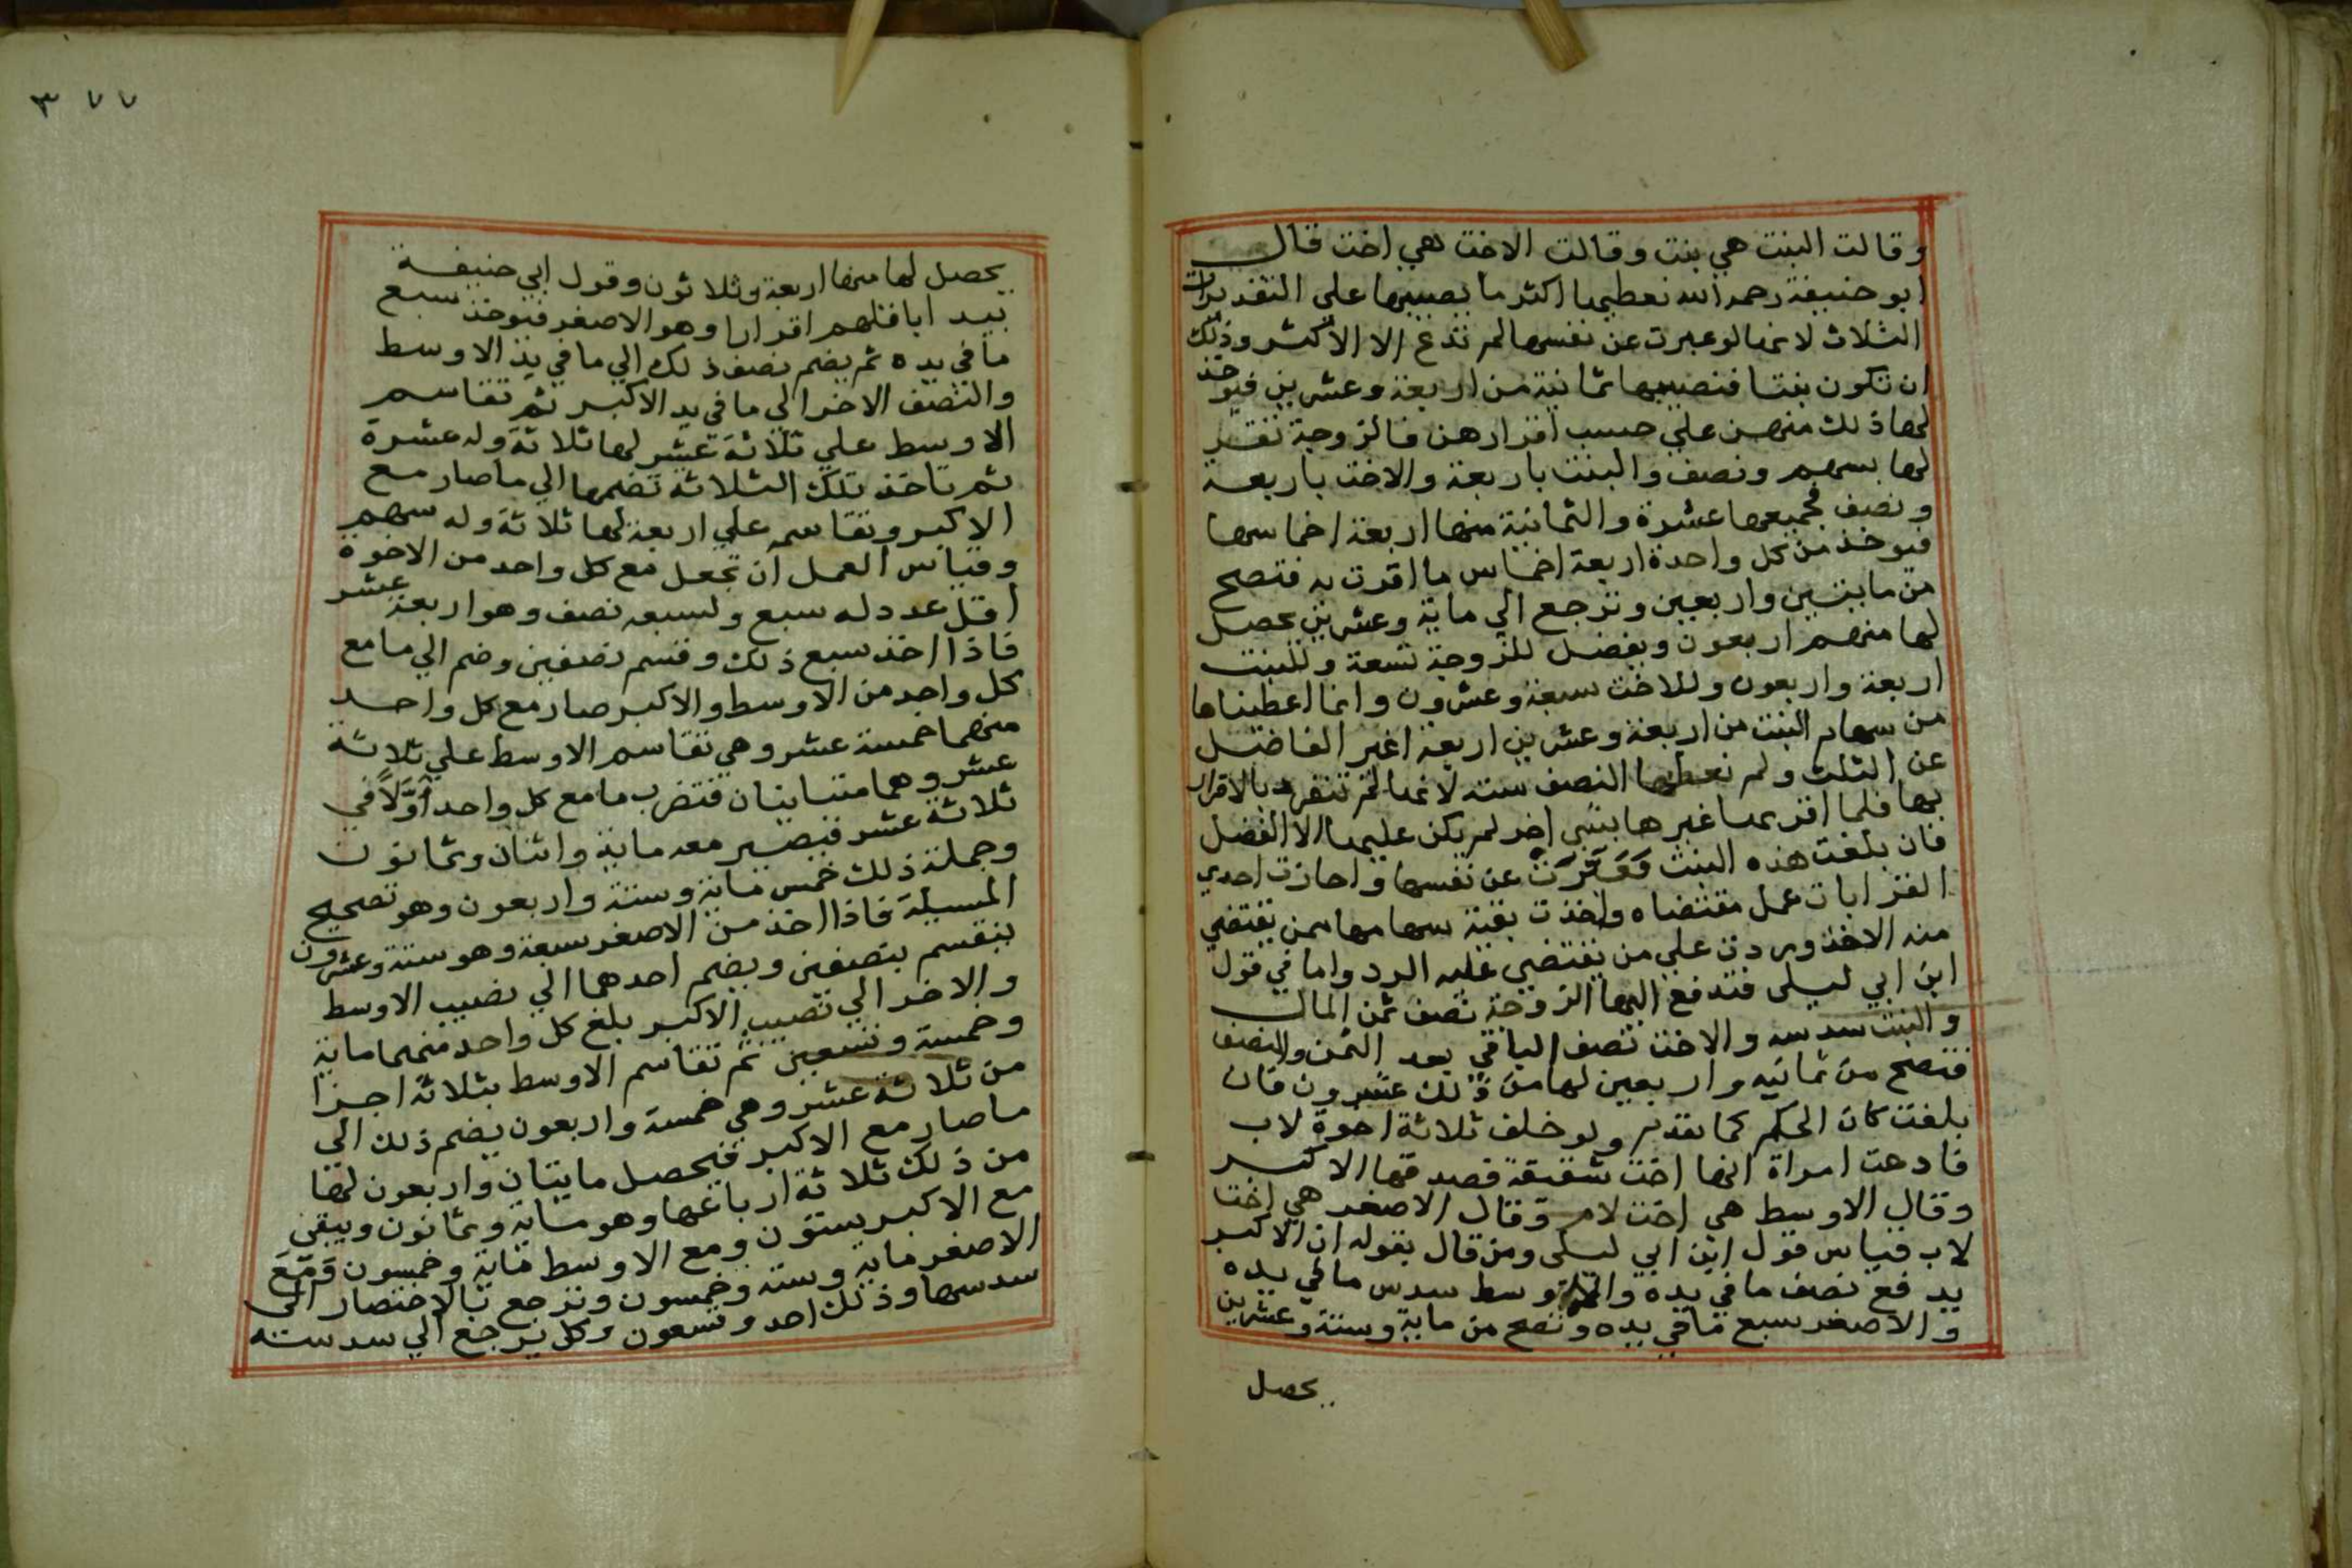 وقالت البنت هي بنت وقالت الاخت هي اخت قال
ابو حنيفة رحمه الله نعطيها اكثر ما يصيبها علي التقديرات
الثلاث لانها لو عبرت عن نفسها لم تدع الا الاكثر وذلك
ان تكون بنتا فنصيبها ثمانية من اربعة وعشرين فيوخذ
لها ذلك منهن علي حسب اقرارهن فالزوجة تقر
لها بسهم ونصف والبنت باربعة والاخت باربعة
ونصف فجميعها عشرة والثمانية منها اربعة اخماسها
فيوخذ من كل واحدة اربعة اخماس ما اقرت به فتصح
من مايتين واربعين وترجع الي ماية وعشرين يحصل
لها منهم اربعون ويفضل للزوجة تسعة وللبنت
اربعة واربعون وللاخت سبعة وعشرون وانما اعطيناها
من سهام البنت من اربعة وعشرين اربعة اغير الفاضل
عن الثلث ولم نعطها النصف ستة لانها لم تنفرد بالاقرار
بها فلما اقر بها غيرها بشي اخر لم يكن عليها الا الفضل
فان بلغت هذه البنت فعبرت عن نفسها واجازت احدي
القرابات عمل مقتضاه واخذت بقية سهامها ممن يقتضي
منه الاخذ وردت علي من يقتضي عليه الرد واما في قول
ابن ابي ليلي فتدفع اليها الزوجة نصف ثمن المال
والبنت سدسه والاخت نصف الباقي بعد الثمن والنصف
فتصح من ثمانيه واربعين لها من ذلك عشرون فان
بلغت كان الحكم كما تقدم ولو خلف ثلاثة اخوة لاب
فادعت امراة انها اخت شقيقة فصدقها الاكبر
وقال الاوسط هي اخت لام وقال الاصغر هي اخت
لاب فقياس قول ابن ابي ليلي ومن قال بقوله ان الاكبر
يدفع نصف ما في يده والاوسط سدس ما في يده
والاصغر سبع ما في يده وتصح من ماية وستة وعشرين
يحصل
٣٧٧
يحصل لها منها اربعة وثلاثون وقول ابي حنيفة
يبدا باقلهم اقرارا وهو الاصغر فيوخذ سبع
ما في يده ثم يضم نصف ذلك الي ما في يد الاوسط
والنصف الاخر الي ما في يد الاكبر ثم تقاسم
الاوسط علي ثلاثة عشر لها ثلاثة وله عشرة
ثم تاخذ تلك الثلاثة تضمها الي ما صار مع
الاكبر وتقاسمه علي اربعة لها ثلاثة وله سهم
وقياس العمل ان تجعل مع كل واحد من الاخوة
اقل عدد له سبع ولسبعه نصف وهو اربعة عشر
فاذا اخذ سبع ذلك وقسم نصفين وضم الي ما مع
كل واحد من الاوسط والاكبر صار مع كل واحد
منهما خمسة عشر وهي تقاسم الاوسط علي ثلاثة
عشر وهما متباينان فتضرب ما مع كل واحد اولا في
ثلاثة عشر فيصير معه ماية واثنان وثمانون
وجملة ذلك خمس ماية وستة واربعون وهو تصحيح
المسيلة فاذا اخذ من الاصغر سبعة وهو ستة وعشرون
ينقسم بنصفين ويضم احدهما الي نصيب الاوسط
والاخر الي نصيب الاكبر بلغ كل واحد منهما ماية
وخمسة وتسعين ثم تقاسم الاوسط بثلاثة اجزا
من ثلاثة عشر وهي خمسة واربعون يضم ذلك الي
ما صار مع الاكبر فيحصل مايتان واربعون لها
من ذلك ثلاثة ارباعها وهو ماية وثمانون ويبقي
مع الاكبر ستون ومع الاوسط ماية وخمسون ومع
الاصغر ماية وستة وخمسون وترجع بالاختصار الي
سدسها وذلك احد وتسعون وكل يرجع الي سدسه